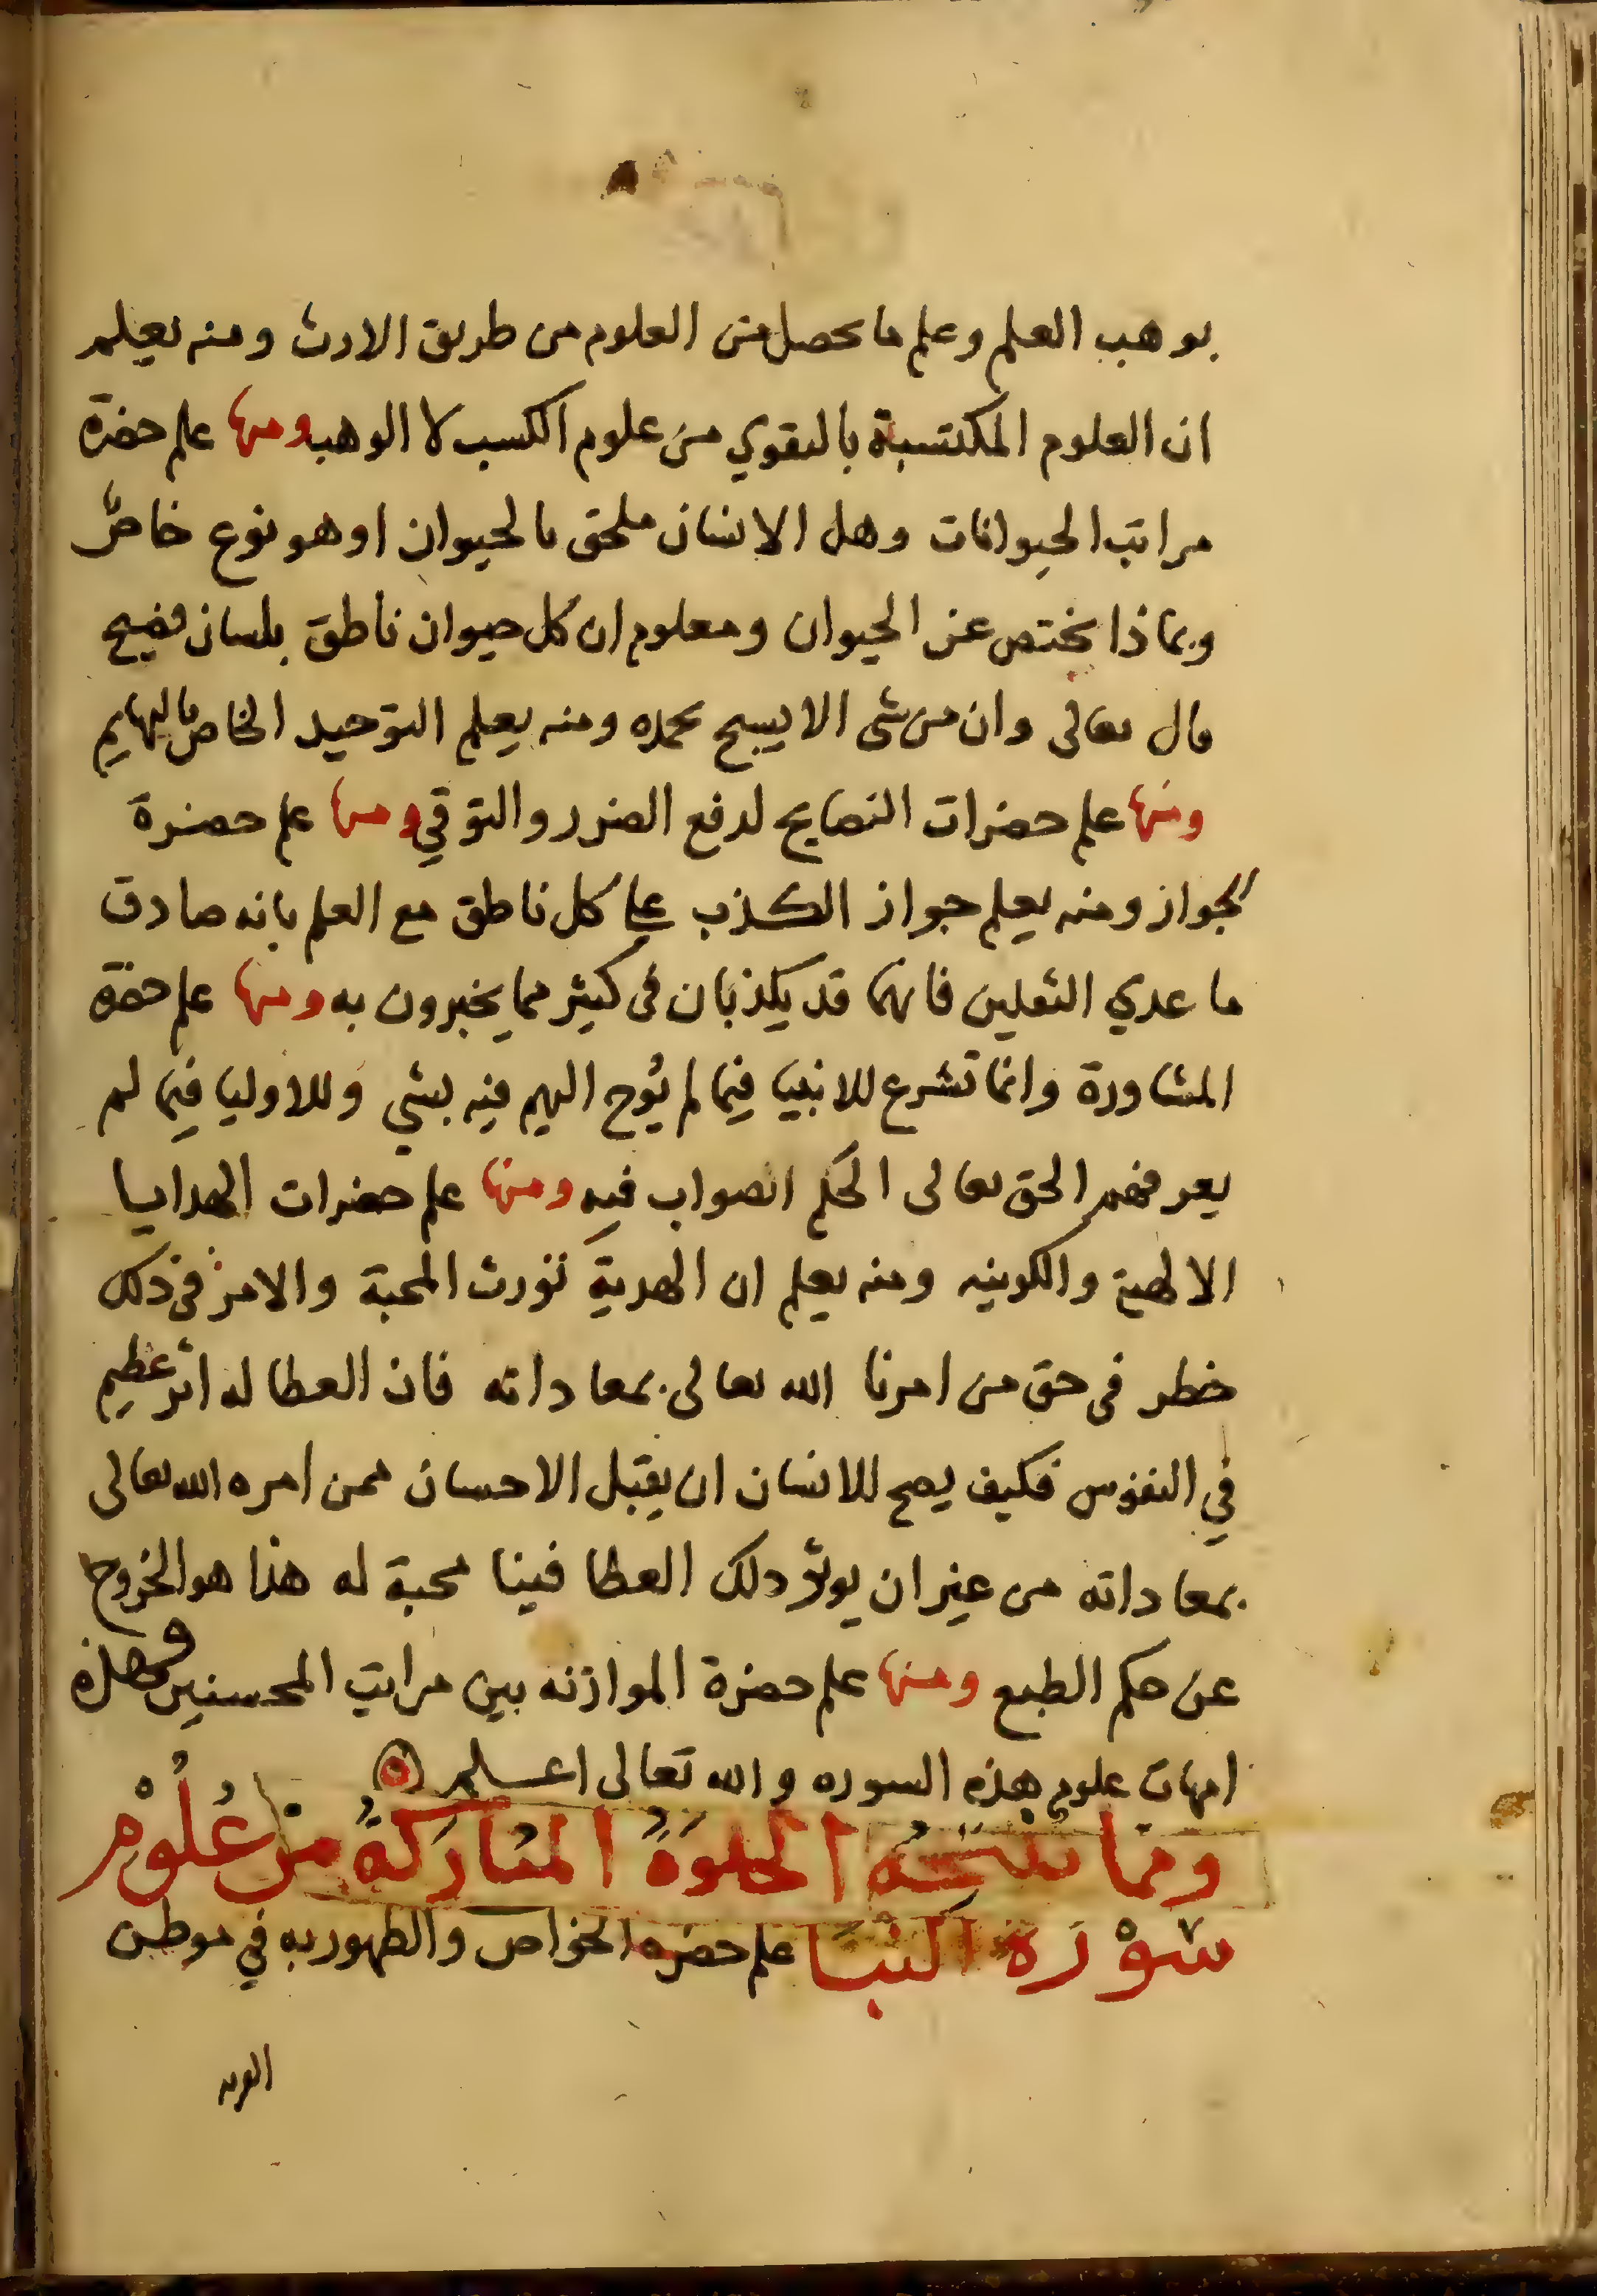 بوهب العلم وعلم ما يحصل من العلوم من طريق الارث ومنه يعلم
ان العلوم المكتسبة بالتقوي من علوم الكسب لا الوهب ومنها علم حضرة
مراتب الحيوانات وهل الانسان ملحق بالحيوان او هو نوع خاص
وبماذا يختص عن الحيوان ومعلوم ان كل حيوان ناطق بلسان فصيح
قال تعالى وان من شى الا يسبح بحمده ومنه يعلم التوحيد الخاص بالبهايم
ومنها علم حضرات النصايح لدفع الضرر والتوقي ومنها علم حضرة
الجواز ومنه يعلم جواز الكذب على كل ناطق مع العلم بانه صادق
ما عدي الثقلين فانهما قد يكذبان فى كثير مما يخبرون به ومنها علم حضرة
المشاورة وانما تشرع للانبيا فيما لم يُوح اليهم فيه بشي وللاوليا فيما لم
يعرفهم الحق تعالى الحكم الصواب فيه ومنها علم حضرات الهدايا
الالهية والكونيه ومنه يعلم ان الهدية تورث المحبة والامر في ذلك
خطر فى حق من امرنا الله تعالى بمعاداته فان العطا له اثر عظيم
في النفوس فكيف يصح للانسان ان يقبل الاحسان ممن امره الله تعالى
بمعاداته من غير ان يوثر ذلك العطا فينا محبة له هذا هو الخروج
عن حكم الطبع ومنها علم حضرة الموازنه بين مراتب المحسنين وهذه
امهات علوم هذه السوره والله تعالى اعلم
ومما تنتجه الخلوة المباركة من علوم
سورة النبا علم حضره الخواص والظهور به في موطن